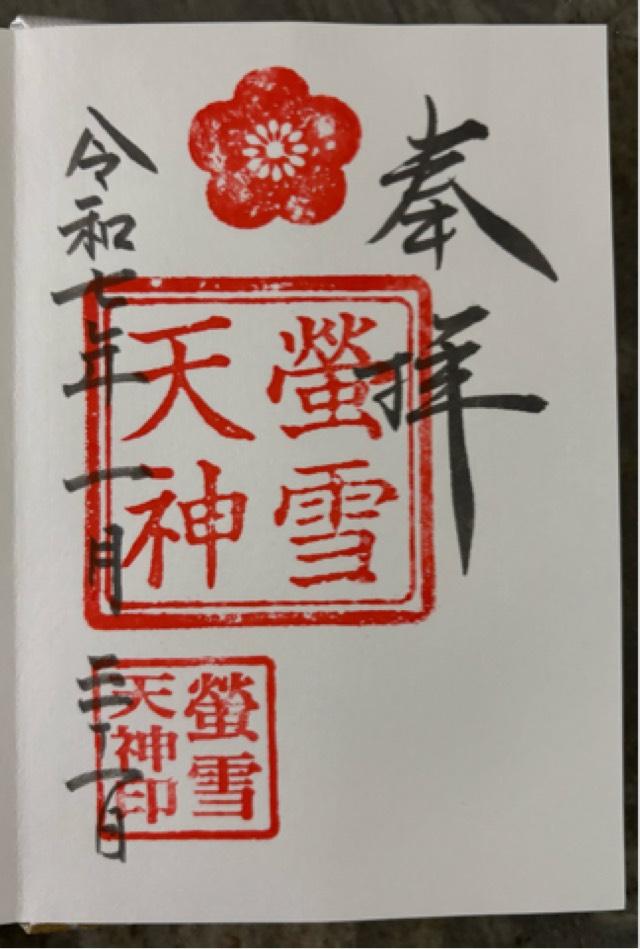 奉拝
螢雪
天神
螢雪
天神印
令和七年一月三十一日